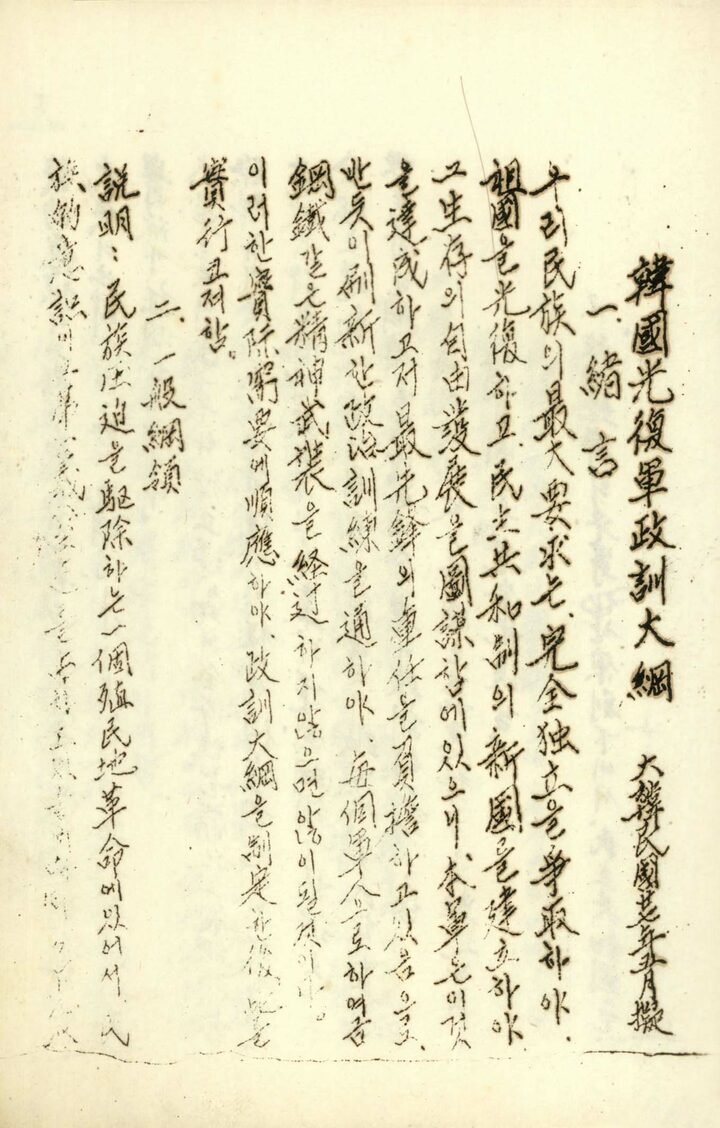 韓國光復軍政訓大綱 大韓民國廿七年五月擬
一. 緖言
우리民族의最大要求는、完全独立을爭取하야、
祖國을光復하고、民主共和制의新國을建立하야、
그生存의自由發展을圖謀함에있으니 本軍은이것
을達成하고저 最先鋒의重任을負擔하고있음으로、
반듯이刷新한政治訓練을通하야、每個軍人으로하여금
鋼鐵같은精神武裝을経过하지않으면않이될것이다。
이러한實际需要에順應하야、政訓大綱을制定한後
實行코저함。
二. 一般綱領
説明：民族压迫을驅除하는一個殖民地革命에있어서 民
族的意識